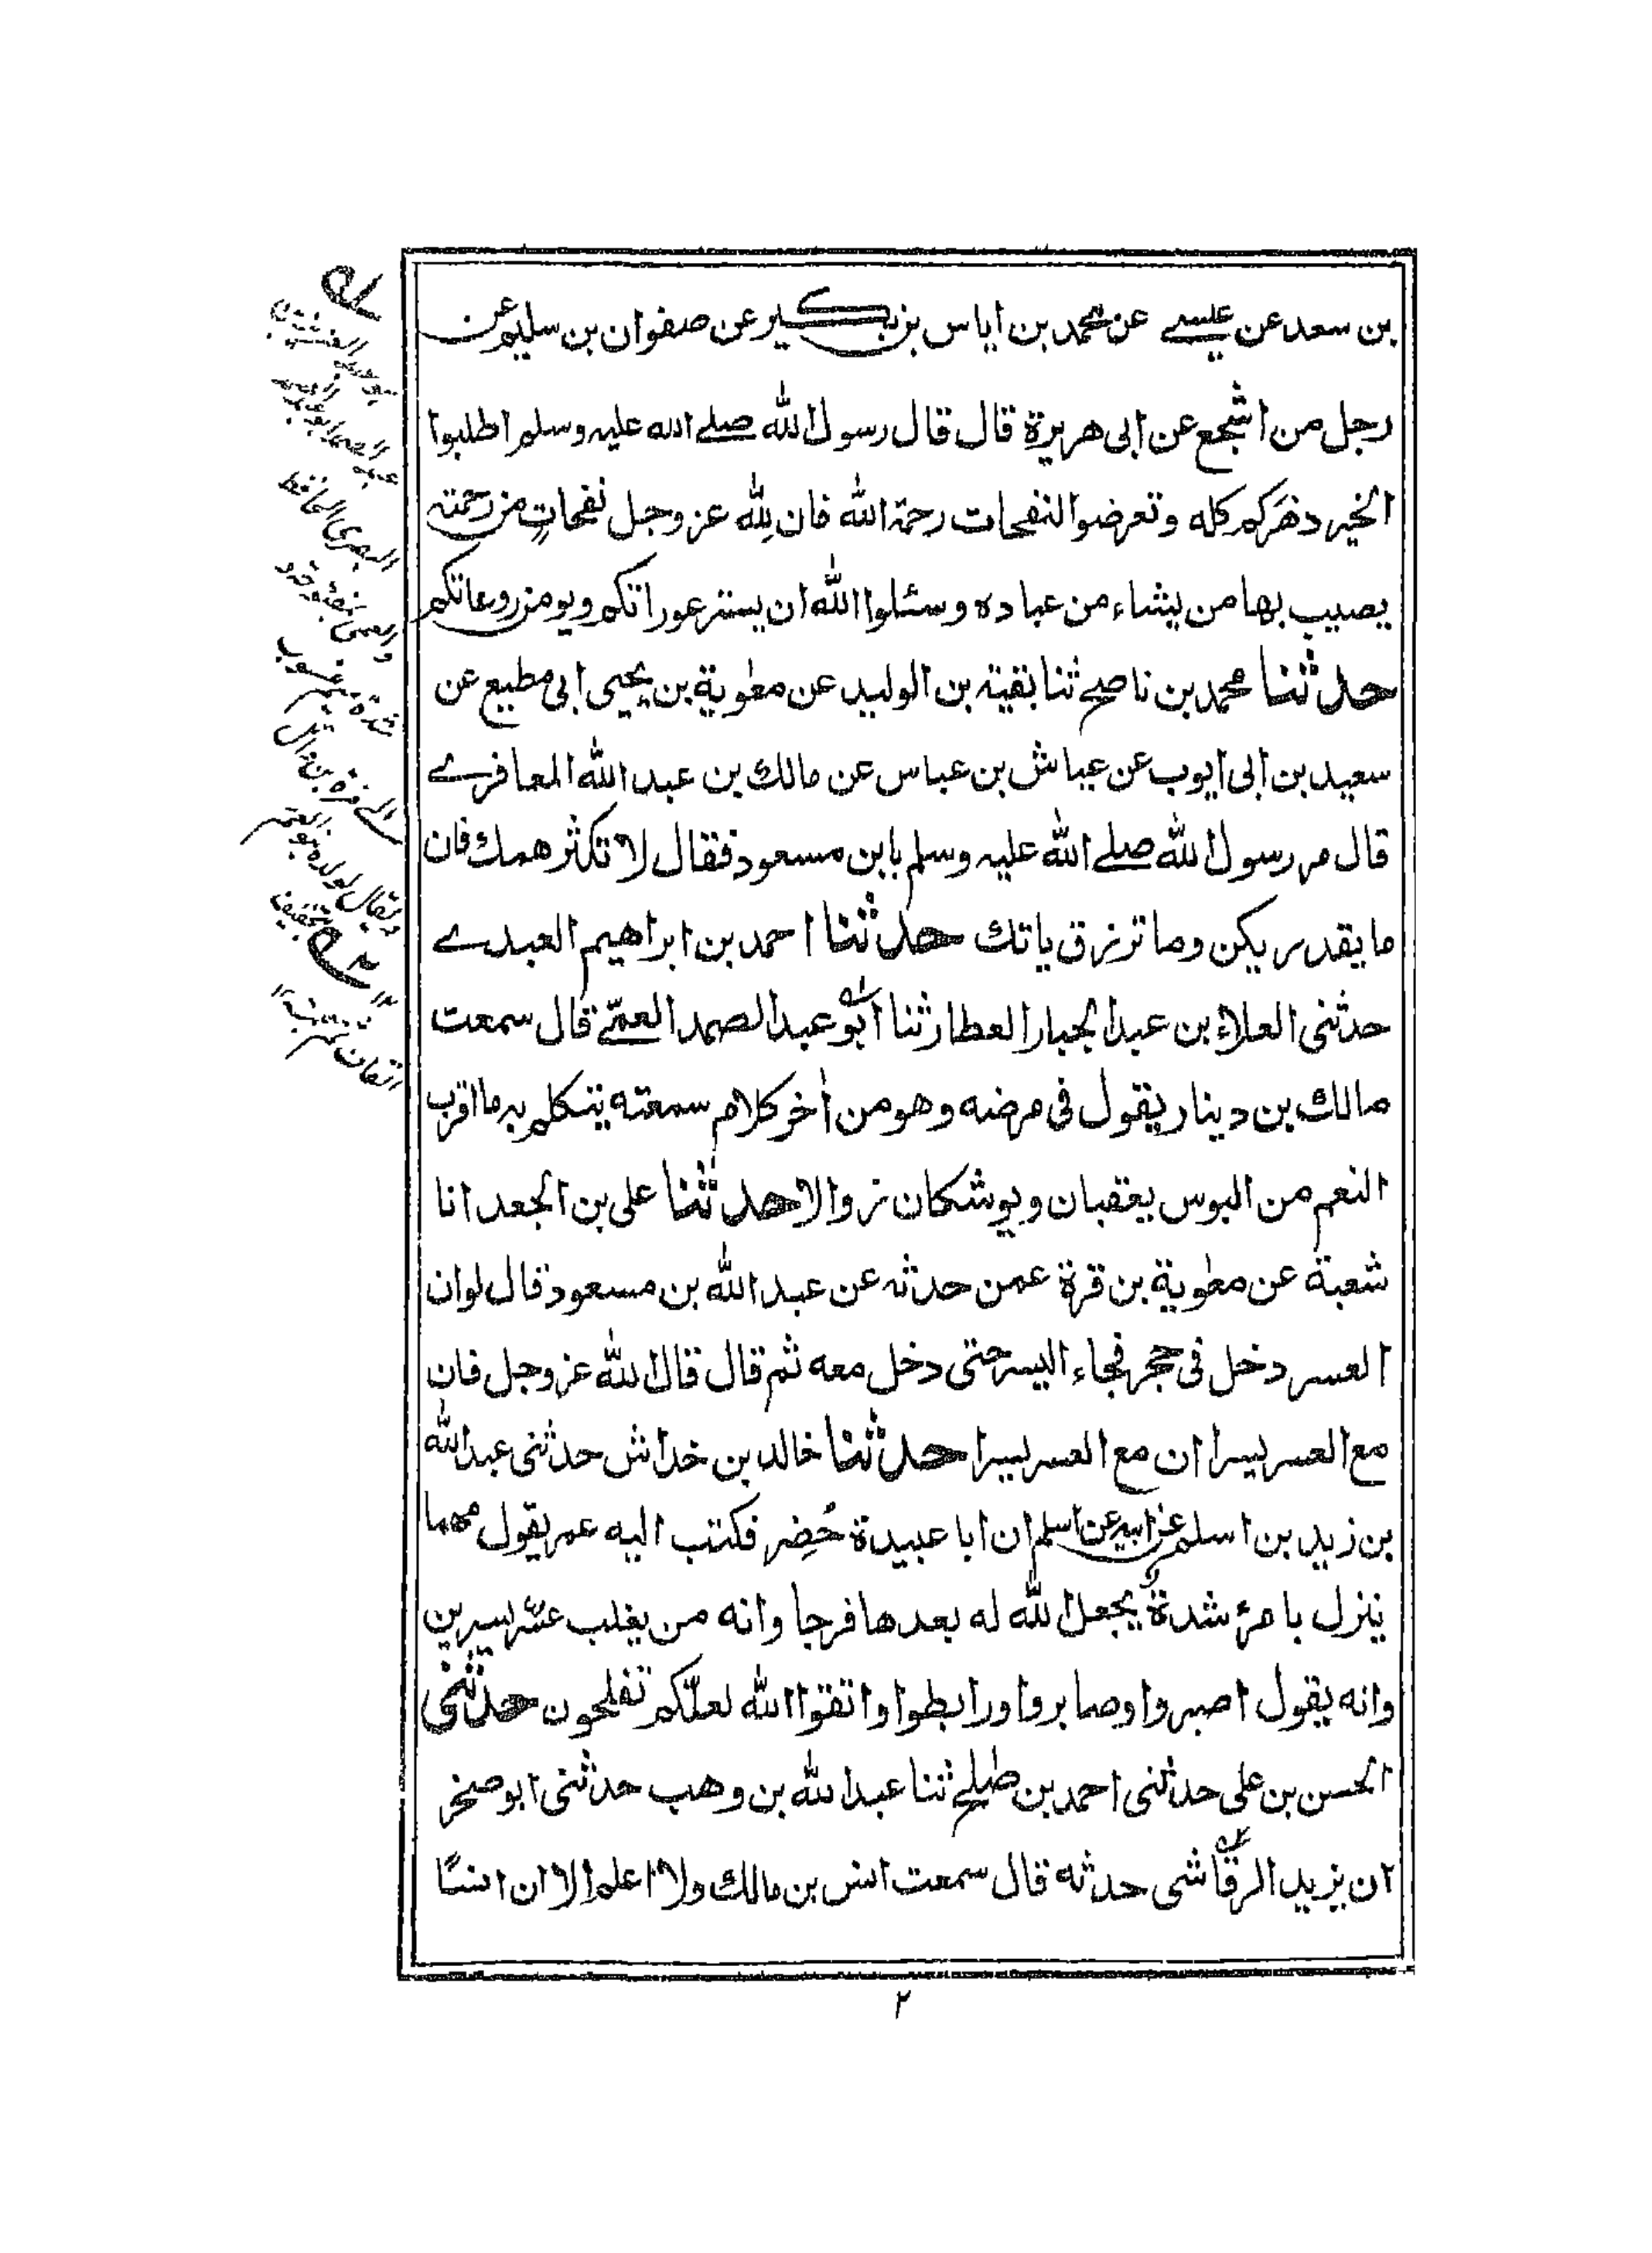 بن سعد عن عيسے عن محمد بن اياس بن بكير عن صفوان بن سليم عن
رجل من اشجع عن ابى هريرة قال قال رسول الله صلے الله عليه وسلم اطلبوا
الخير دهركم كله وتعرضوا لنفحات رحمة الله فان لله عز وجل نفحات من رحمته
يصيب بها من يشاء من عباده وسئلوا الله ان يستر عوراتكم ويومن روعاتكم
حدثنا محمد بن ناصح ثنا بقية بن الوليد عن معٰوية بن يحيى ابى مطيع عن
سعيد بن ابى ايوب عن عياش بن عباس عن مالك بن عبد الله المعافرے
قال مر رسول الله صلے الله عليه وسلم بابن مسعود فقال لا تكثر همك فان
ما يقدر يكن وما ترزق ياتك حدثنا احمد بن ابراهيم العبدے
حدثنى العلاء بن عبد الجبار العطار ثنا ابو عبد الصمد العمّے قال سمعت
مالك بن دينار يقول فى مرضه وهو من اٰخر كلام سمعته يتكلم به ما اقرب
النعم من البوس يعقبان ويوشكان زوالا حدثنا على بن الجعد انا
شعبة عن معٰوية بن قرة عمن حدثه عن عبد الله بن مسعود قال لو ان
العسر دخل فى حجر فجاء اليسر حتى دخل معه ثم قال قال الله عز وجل فان
مع العسر يسرا ان مع العسر يسرا حدثنا خالد بن خداش حدثنى عبد الله
بن زيد بن اسلم عن ابيه عن اسلم ان ابا عبيدة حُضِر فكتب اليه عمر يقول مهما
ينزل بامرء شدة يجعل الله له بعدها فرجا وانه من يغلب عسر يسرين
وانه يقول اصبروا وصابروا ورابطوا واتقوا الله لعلّكم تفلحون حدثنى
الحسن بن على حدثنى احمد بن صٰلح ثنا عبد الله بن وهب حدثنى ابو صخر
ان يزيد الرقاشى حدثه قال سمعت انس بن مالك ولا اعلم الا ان انسًا
٢
عبد الصمد
البصرى الحافظ